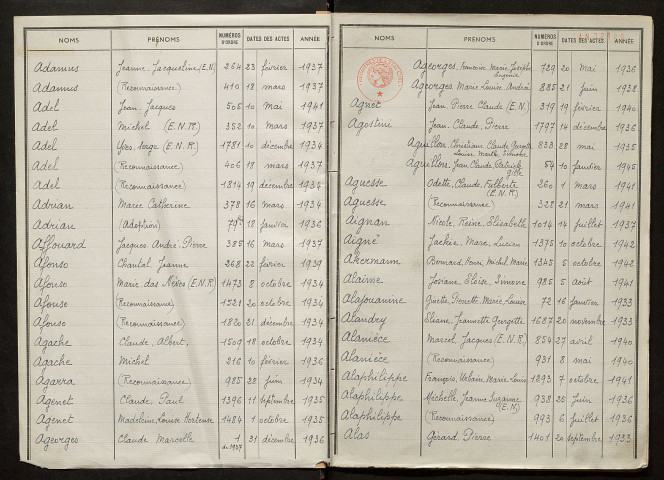 NOMS PRÉNOMS NUMÉROS D'ORDRE DATES DES ACTES ANNÉE
Adamus Jeanne Jacqueline (E.N.) 264 23 février 1937
Adamus (Reconnaissance) 410 18 mars 1937
Adel Jean Jacques 505 10 Mai 1941
Adel Michel (E.N.R.) 352 10 mars 1937
Adel Yves Serge (E.N.R) 1781 10 décembre 1934
Adel (Reconnaissance) 406 18 mars 1937
Adel (Reconnaissance) 1814 19 décembre 1934
Adrian Marie Catherine 378 16 mars 1934
Adrian (Adoption) 79 18 janvier 1936
Affouard Jacques André Pierre 385 16 mars 1937
Afonso Chantal Jeanne 268 22 février 1939
Afonso Marie das Neves (E.N.R) 1473 8 octobre 1934
Afonso (Reconnaissance) 1521 20 octobre 1934
Afonso (Reconnaissance) 1820 21 décembre 1934
Agache Claude, Albert 1509 18 octobre 1934
Agache Michel 216 10 février 1936
Agarra (Reconnaissance) 985 28 juin 1934
Agenet Claude, Paul 1396 11 septembre 1935
Agenet Madeleine Louise Hortense 1484 1 octobre 1935
Ageorges Claude Marcelle 1 de 1937 31 décembre 1936
NOMS PRÉNOMS NUMÉROS D'ORDRE DATES DES ACTES ANNÉE
Ageorges, Francoise Marie Josèphe Eugénie 729 20 Mai 1936
Ageorges Marie Louise Andrée 885 21 juin 1938
Agnet Jean Pierre Claude (E.N.) 319 19 février 1940
Agostini Jean Claude, Pierre 1797 14 décembre 1936
Aguillon, Christiane Claude Georgette 833 28 mai 1935
Aguillon, Jean Claude Patrick 54 10 janvier 1945
Aguesse Odette, Claude, Filberte (E.N.R.) 260 1 mars 1941
Aguesse (Reconnaissance) 328 21 mars 1941
Aignan Nicole, Reine, Elisabeth 1014 14 juillet 1937
Aigné Jackie, Marc, Lucien 1375 10 octobre 1942
Akermann Bernard, Henri, Michel Marie 1345 5 octobre 1942
Alaime Josiane Eloïse Simone 985 5 août 1941
Alajouanine Guette, Pierrette, Marie, Louise 72 16 janvier 1933
Alandry Eliane, Jeannette Georgette 1687 20 novembre 1933
Alanièce Marcel Jacques (E.N.R.) 854 27 avril 1940
Alanièce (Reconnaissance) 931 8 mai 1940
Alaphilippe François, Urbain, Marie, Louis 1893 7 octobre 1941
Alaphilippe Michelle, Jeanne Suzanne (E.N.) 938 25 juin 1936
Alaphilippe (Reconnaissance) 993 6 juillet 1936
Alas Gérard, Pierre 1401 20 septembre 1933